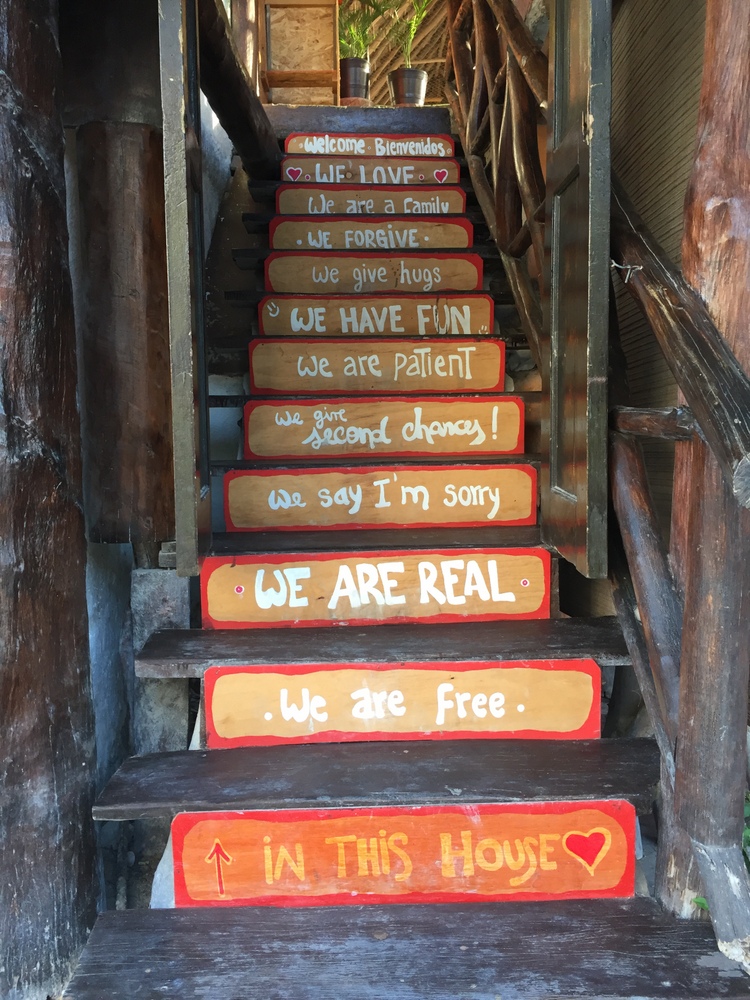 Welcome Bienvenidos
WE LOVE
We are a Family
WE FORGIVE
we give hugs
WE HAVE FUN
we are patient
we give
second chances!
we say I'm sorry
WE ARE REAL
We are free
IN THIS HOUSE